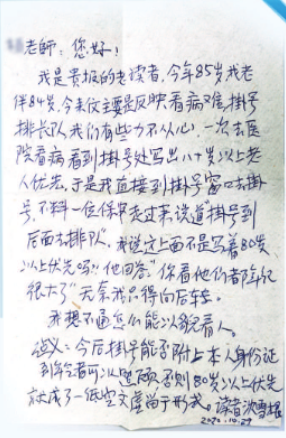 老师：您好！
我是贵报的老读者，今年85岁我老
伴84岁，今来仅主要是反映看病难，挂号
排长队，我们有些力不从心，一次去医
院看病看到挂号处写出八十岁以上老
人优先，于是我直接到挂号窗口去挂
号，不料一位保安走过来，说道"挂号到
后面去排队"，我说这上面不是写着80岁
以上优先吗？"他回答"你看他们都年纪
很大了"无奈我只得向后车去。
我想不通怎么能以貌看人。
建义：今后挂号能否附上本人身份证
到年者可以照顾，否则80岁以上优先
就成了一纸空文虚尚于形式。读者沈雪根
2020.10.29